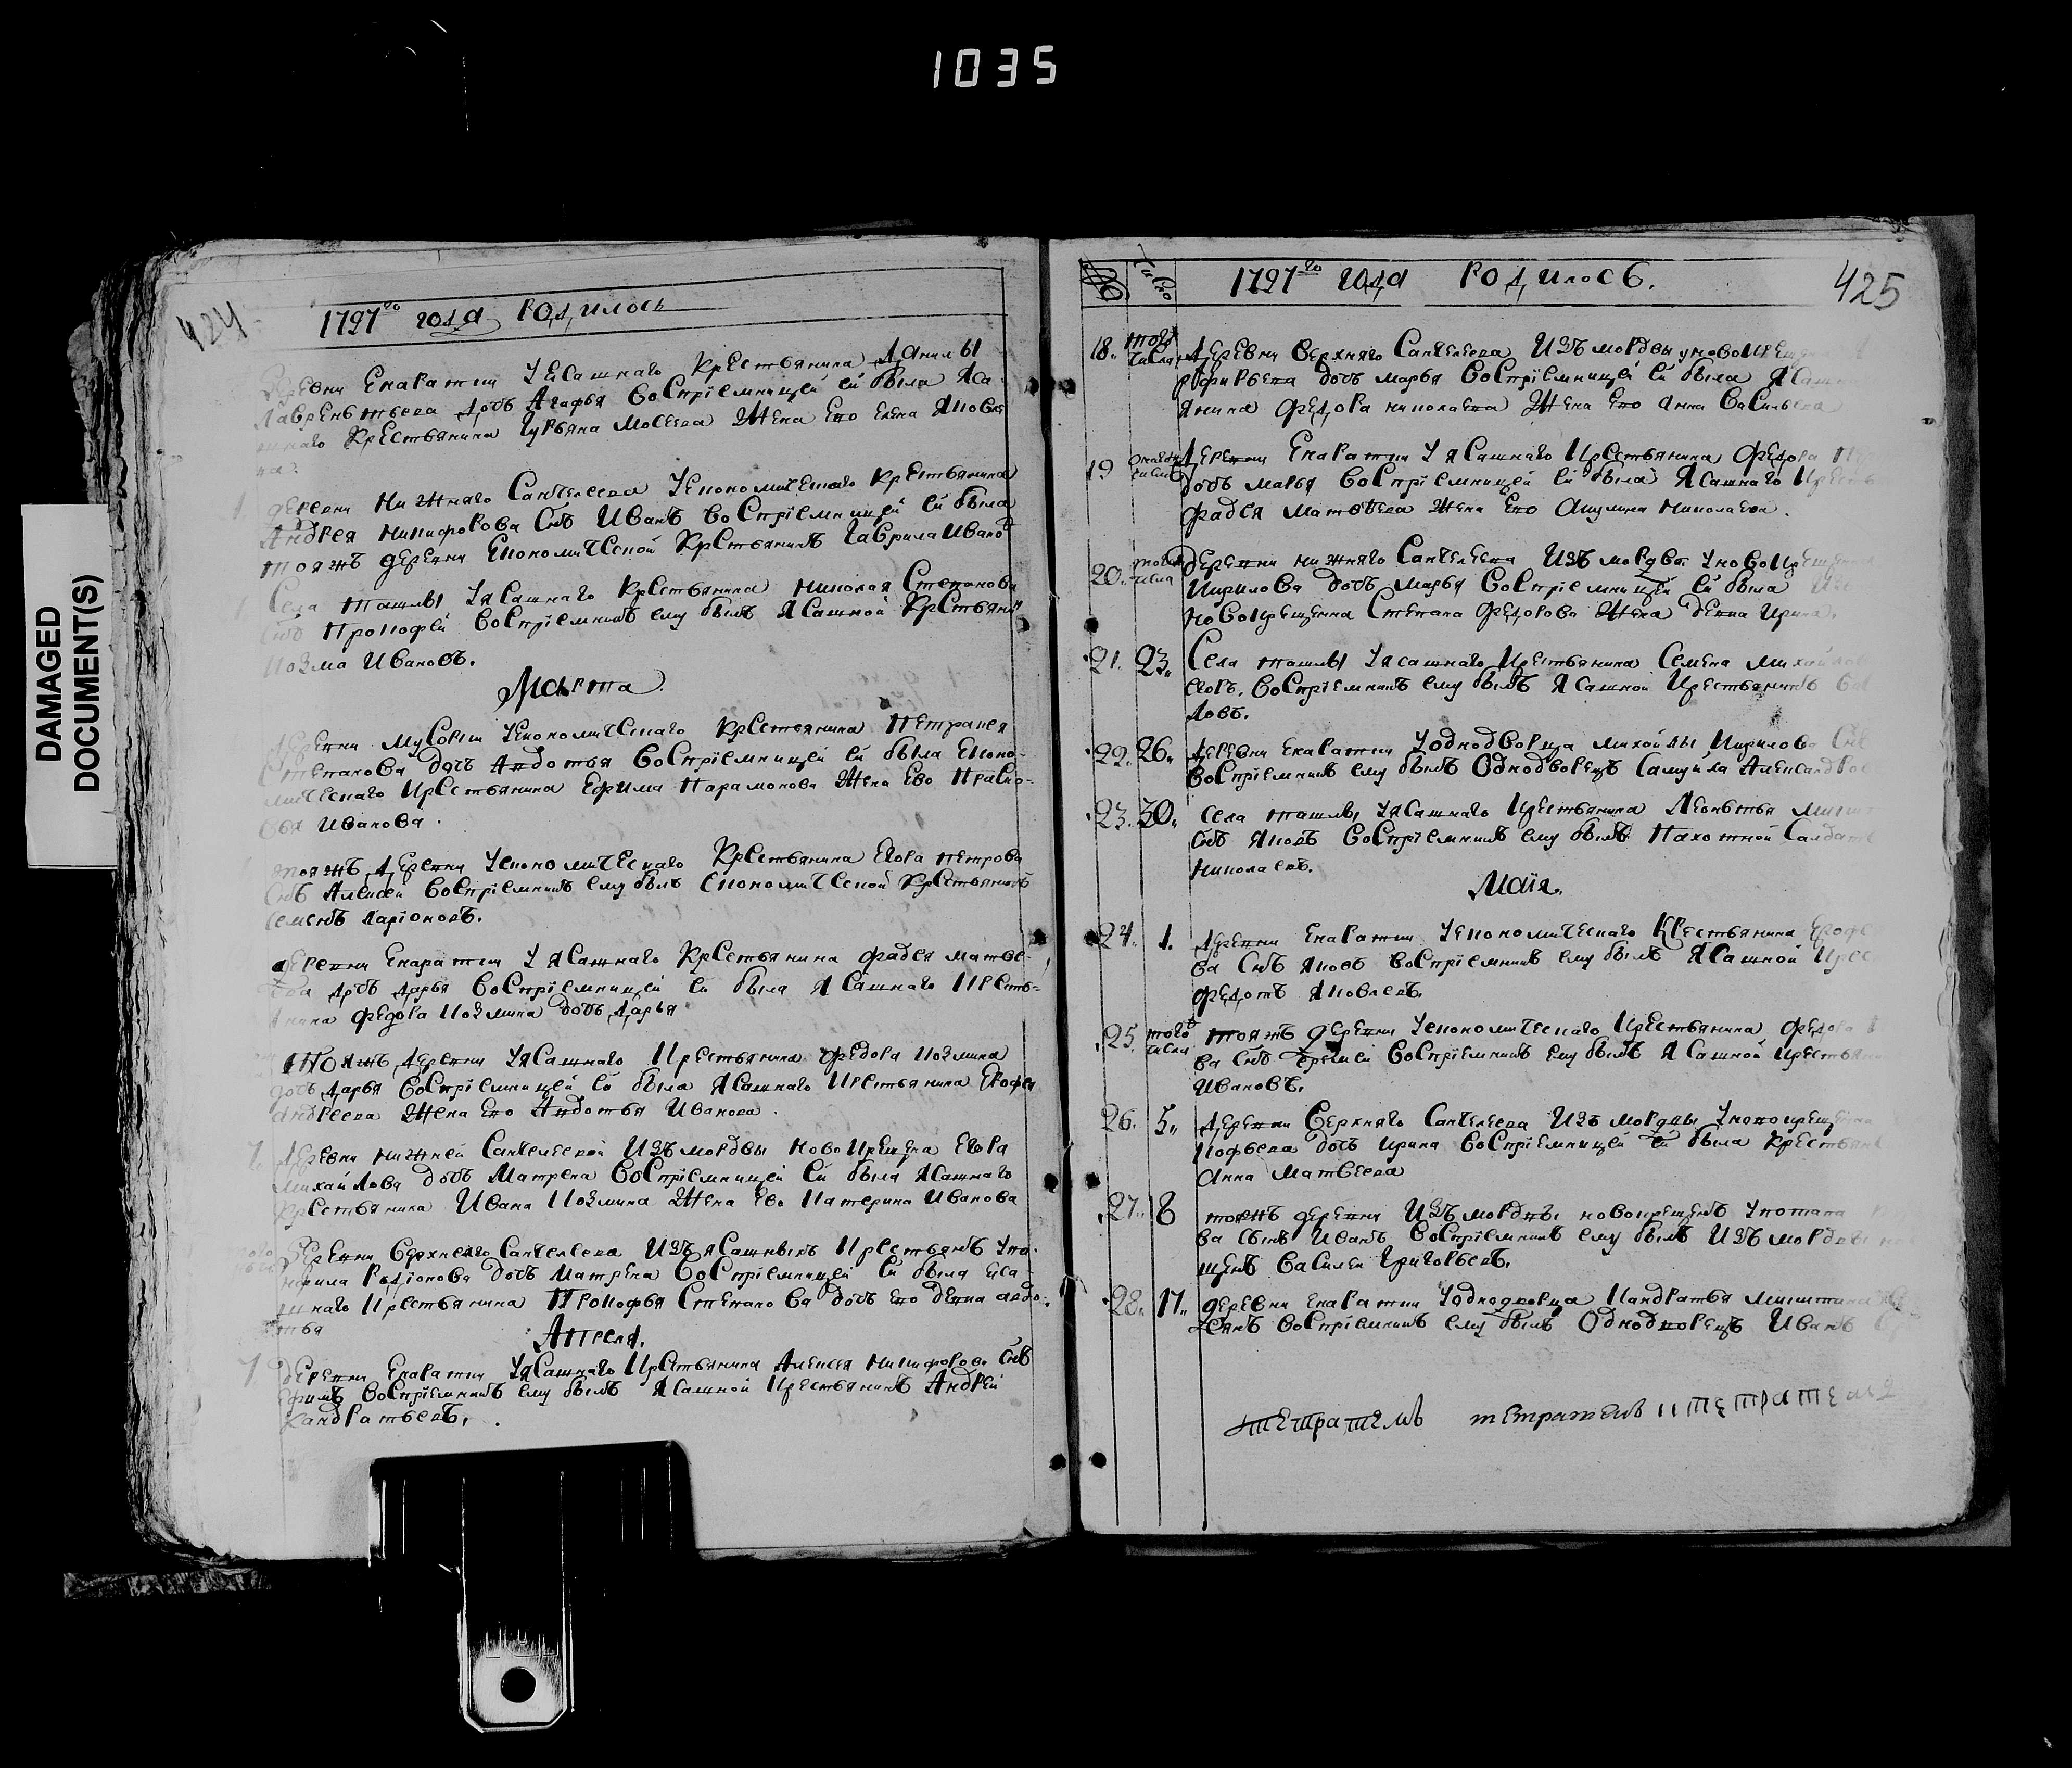 1035
DAMAGED
DOCUMENT(S)
424
1797го года Родилось
Деревни Екаратки У Ясашнаго Крестьянина Данилы
Лаврентьева дочь Агафья Воспріемницей ей была Яса
шнаго Крестьянина Гурьяна Мосеева Жена Ево Елена Яковле
на.
деревни Нижняго Санчелеева Уекономическаго Крестьянина
Андрея Никифорова Снъ Иванъ Воспріемницей ей была
тояжъ деревни Економической Крстьянинъ Гаврила Ивановъ
Села ташлы Уясашнаго Крестьянина Николая Степанова
Снъ Прокофей Воспріемникъ ему былъ Ясашной Крстьянинъ
Козма Ивановъ.
Марта
Деревни Мусорки Уекономическаго Крестьянина Петра
Степанова Дочь Авдотья Воспріемницей ей была Еконо-
мическаго Крестьянина Ефима Парамонова Жена Ево Праско-
вья Иванова.
тояжъ Деревни Уекономическаго Крестьянина Егора Петрова
Снъ Алексей Воспріемникъ ему былъ Економической Крестьянинъ
Семенъ Ларіоновъ.
деревни Екаратки Уясашнаго Крестьянина Фадея Матве-
ева дочь Дарья Воспріемницей ей была Ясашнаго Кресть-
янина Федора Козмина дочь Дарья
Тояжъ Деревни Уясашнаго Крестьянина Федора Козмина
дочь Дарья Воспріемницей ей была Ясашнаго Крестьянина Ерофея
Андреева Жена Ево Авдотья Иванова.
7 Деревни Нижней Санчелеевой Изъ мордвы Новокрещена Егора
Михайлова дочь Матрена Воспріемницей ей была Ясашнаго
Крестьянина Ивана Козмина Жена Ево Катерина Иванова
Деревни Верхнего Санчелеева Изъ ясашныхъ Крестьянъ
Родіонова дочь Матрена Воспріемницей ей была Еса
шнаго Крестьянина Прокофья Степанова дочь Ево девка авдо-
тья
Апреля.
7 деревни Екаратки Уясашнаго Крстьянина Алексея Никифорова Снъ
Ефимъ Воспріемникъ ему былъ Ясашной Крестьянинъ Андрей
Кандратьевъ.
№ Число 1797го года Родилось. 425
18. того числа Деревни Верхняго Санчелеева Изъ мордвы уновокрещ
дочь марья Воспріемницей ей была Ясашн
янина Федора николаева Жена Ево Анна Васильева
19 того числа Деревни Екаратки Уясашнаго Крестьянина Федора
дочь марья Воспріемницей ей была Ясашнаго Кресть
Фадея Матвеева Жена Ево Акулина Николаева.
20. того числа Деревни нижняго Санчелеева Изъ мордвы Уновокрещена
Кирилова дочь Марья Воспріемницей ей была Из
новокрещенна Степана Федорова Жена девка Ирина.
21. 23. Села ташлы Уясашнаго Крестьянина Семена Михайлов
Воспріемникъ ему былъ Ясашной Крестьянинъ
ловъ.
22. 26. Деревни Екаратки Уоднодворца михайлы Кирилова Снъ
Воспріемникъ ему былъ Однодворецъ Самуила Александров
23. 30. Села ташлы Уясашнаго Крестьянина Леонтья
Снъ Яковъ Воспріемникъ ему былъ Пахотной Салдатъ
Николаевъ.
Маія.
24. 1. Деревни Екаратки Уекономическаго Крестьянина
ва Снъ Яковъ Воспріемникъ ему былъ Ясашной Крес
Федотъ Яковлевъ.
25 того числа тояжъ деревни Уекономическаго Крестьянина Федора
ва Снъ Еремей Воспріемникъ ему былъ Ясашной Крестьян
Ивановъ.
26. 5. Деревни Верхняго Санчелеева Изъ мордвы Уновокрещенна
кофьева дочь Ирина Воспріемницей ей была Крестьян
Анна Матвеева
27. 8 тояжъ деревни Изъ мордвы новокрещенъ Употапа
ва Сынъ Иванъ Воспріемникъ ему былъ Изъ мордвы но
щенъ Василей Григорьевъ.
28. 17. деревни Екаратки Уоднодворца Кандратья
Воспріемникъ ему былъ Однодворецъ Иванъ